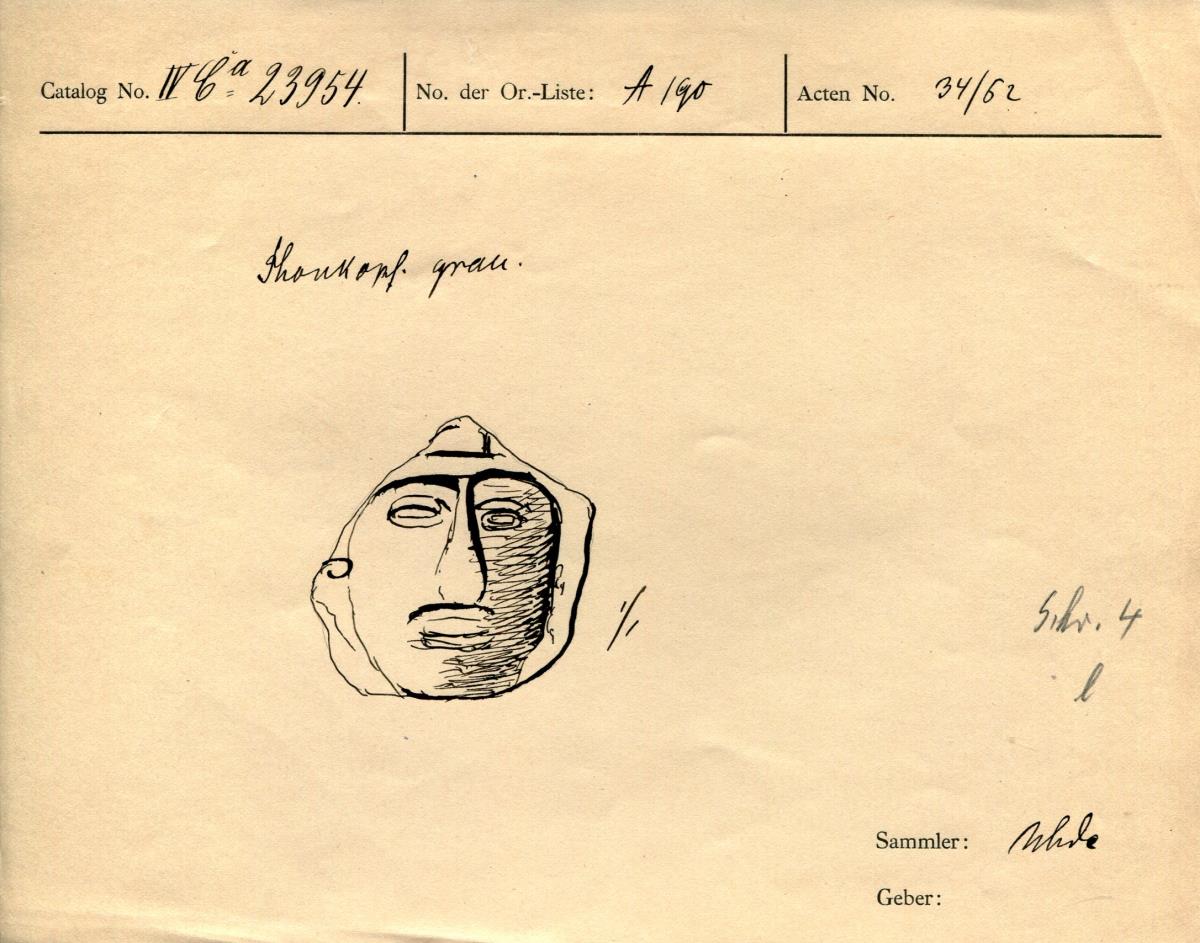 Catalog No. IV Ca 23954. No. der Or.-Liste: A 190 Acten No. 34/62
Thonkopf. grau.
1/1
Schr. 4
l
Sammler: Uhde
Geber: